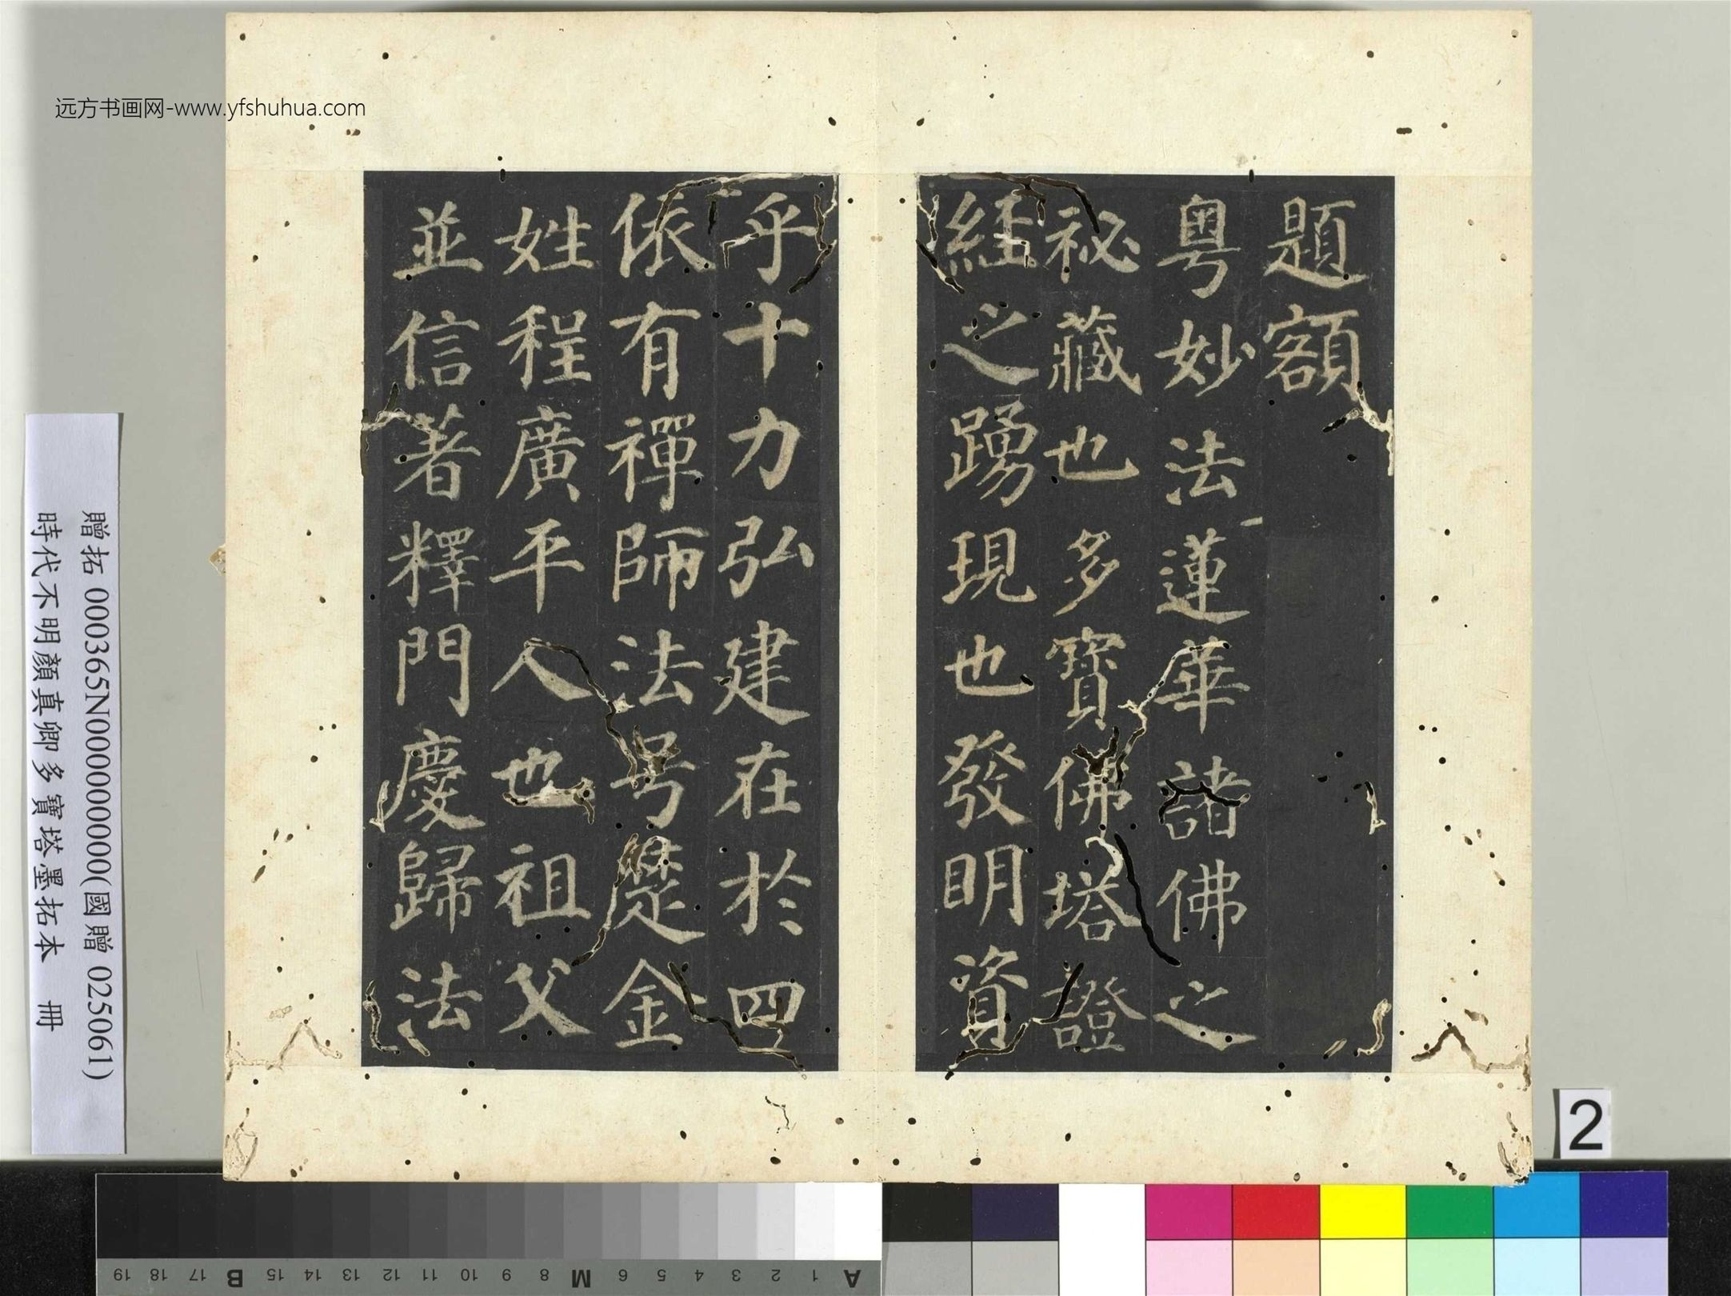 远方书画网-www.yfshuhua.com
題額
粵妙法蓮華諸佛之
祕藏也多寶佛塔證
經之踴現也發明資
乎十力弘建在於四
依有禪師法号楚金
姓程廣平人也祖父
並信著釋門慶歸法
贈拓 000365N000000000(國贈 025061)
時代不明顏真卿多寶塔墨拓本 冊
2
A 1 2 3 4 5 6 M 8 9 10 11 12 13 14 15 B 17 18 19